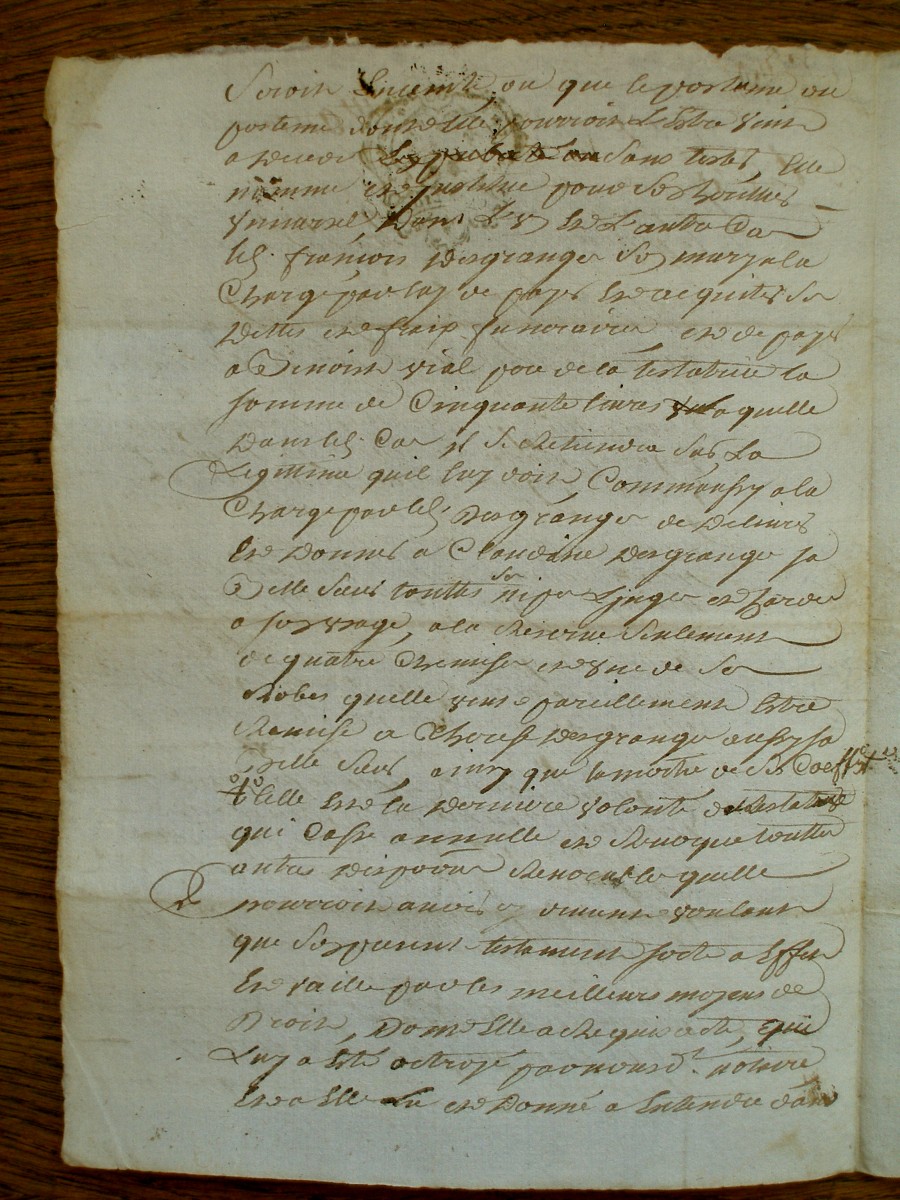 Seroit Enceinte, ou que le postume ou
postume dont Elle pourroit Estre Ensainte
a deceder sans tester, Elle
nomme et institue pour ses heritiers
Universel, dans L'un et L'autre Cas
led. françois Desgranges son mary a la
Charge par luy de payer et acquiter ses
Dettes et fraix funeraires et de payer
a Benoist Vial pour de la testatrice la
somme de Cinquante livres laquelle
Dans led. Cas il se Retiendra sur La
Legitime quil luy doit Comme aussy a la
Charge par led. Desgranges de Delivrer
Et Donner a Claudine Desgranges sa
Belle Seur touttes ses nipes Linges et hardes
a son usage, a la Reserve seulement
de quatre Chemises et d'une de ses
Robes quelle veut pareillement Estre
Remise a Therese Desgranges aussy sa
Belle Seur, ainsy que la moitié de ses Coeffes
telle est la Derniere volonté de la testatrice
qui Casse annulle et Revoque touttes
autres dispositions Revocables quelle
pourroit avoir cy devant voulant
que son present testament sorte a Effet
Et vaille par les meilleurs moyens de
Droit, Dont Elle a Requis acte, que
Luy a Eté octroyé par nousd. notaire
Et a Elle Lu et Donné a Entendre dans